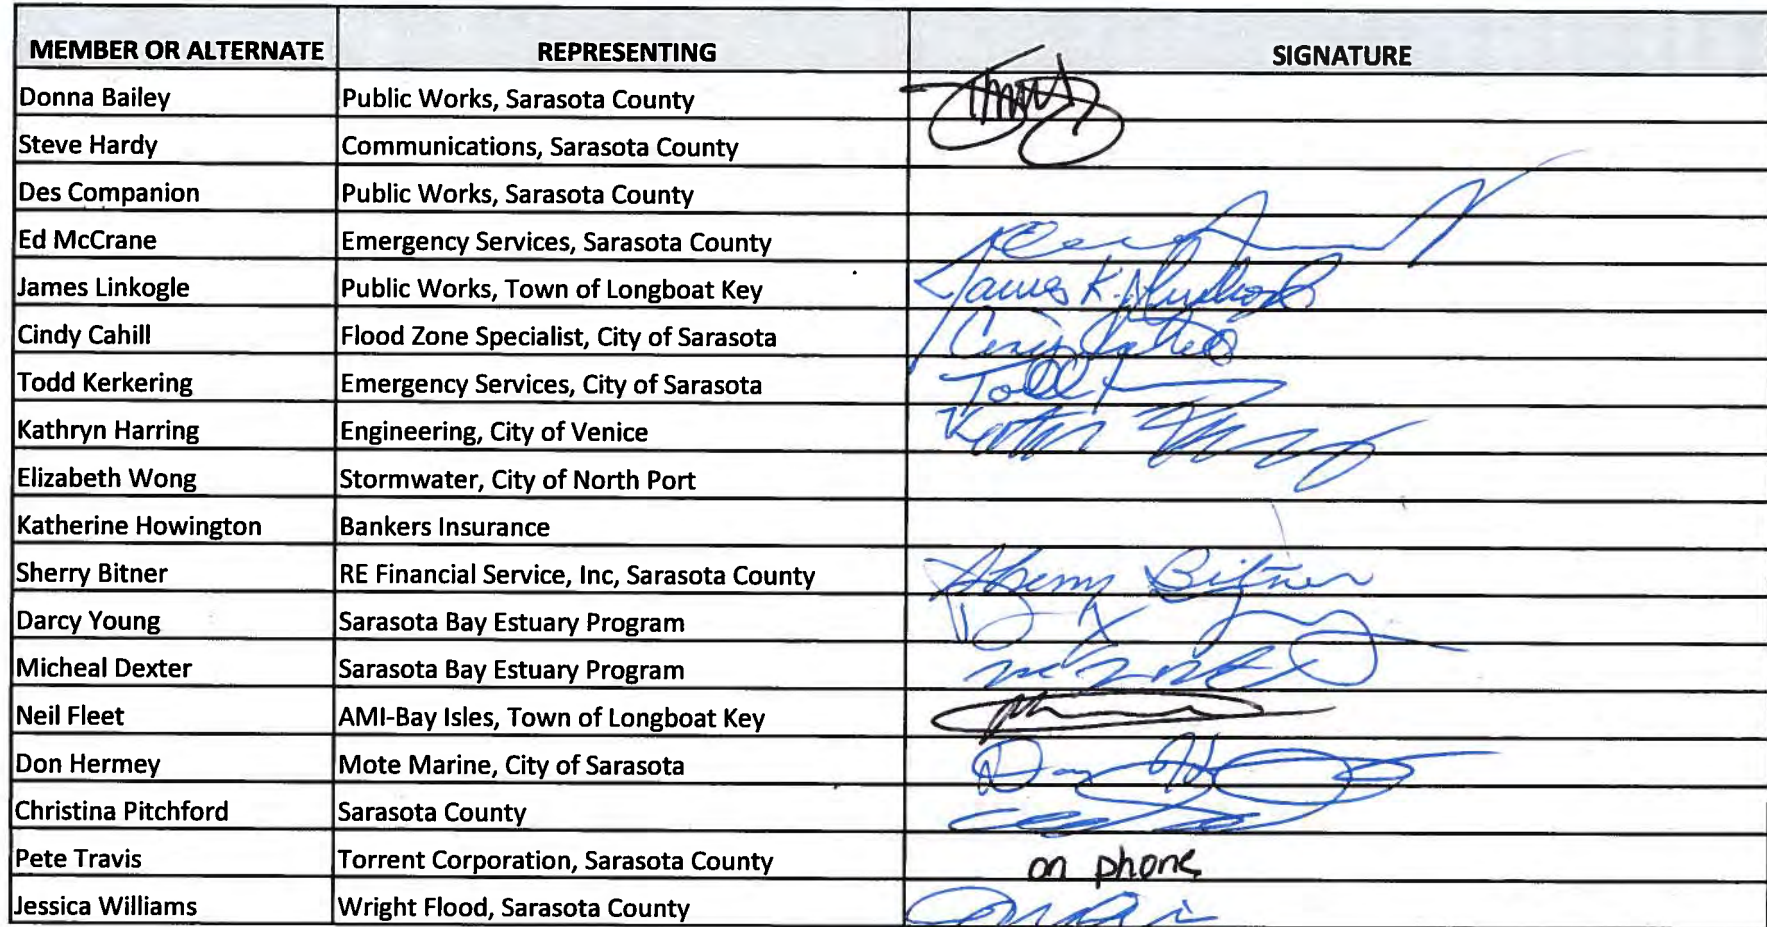 MEMBER OR ALTERNATE REPRESENTING SIGNATURE
Donna Bailey Public Works, Sarasota County
Steve Hardy Communications, Sarasota County
Des Companion Public Works, Sarasota County
Ed McCrane Emergency Services, Sarasota County
James Linkogle Public Works, Town of Longboat Key James K. Linkogle
Cindy Cahill Flood Zone Specialist, City of Sarasota
Todd Kerkering Emergency Services, City of Sarasota Todd
Kathryn Harring Engineering, City of Venice
Elizabeth Wong Stormwater, City of North Port
Katherine Howington Bankers Insurance
Sherry Bitner RE Financial Service, Inc, Sarasota County Sherry Bitner
Darcy Young Sarasota Bay Estuary Program
Micheal Dexter Sarasota Bay Estuary Program
Neil Fleet AMI-Bay Isles, Town of Longboat Key
Don Hermey Mote Marine, City of Sarasota
Christina Pitchford Sarasota County
Pete Travis Torrent Corporation, Sarasota County on phone
Jessica Williams Wright Flood, Sarasota County